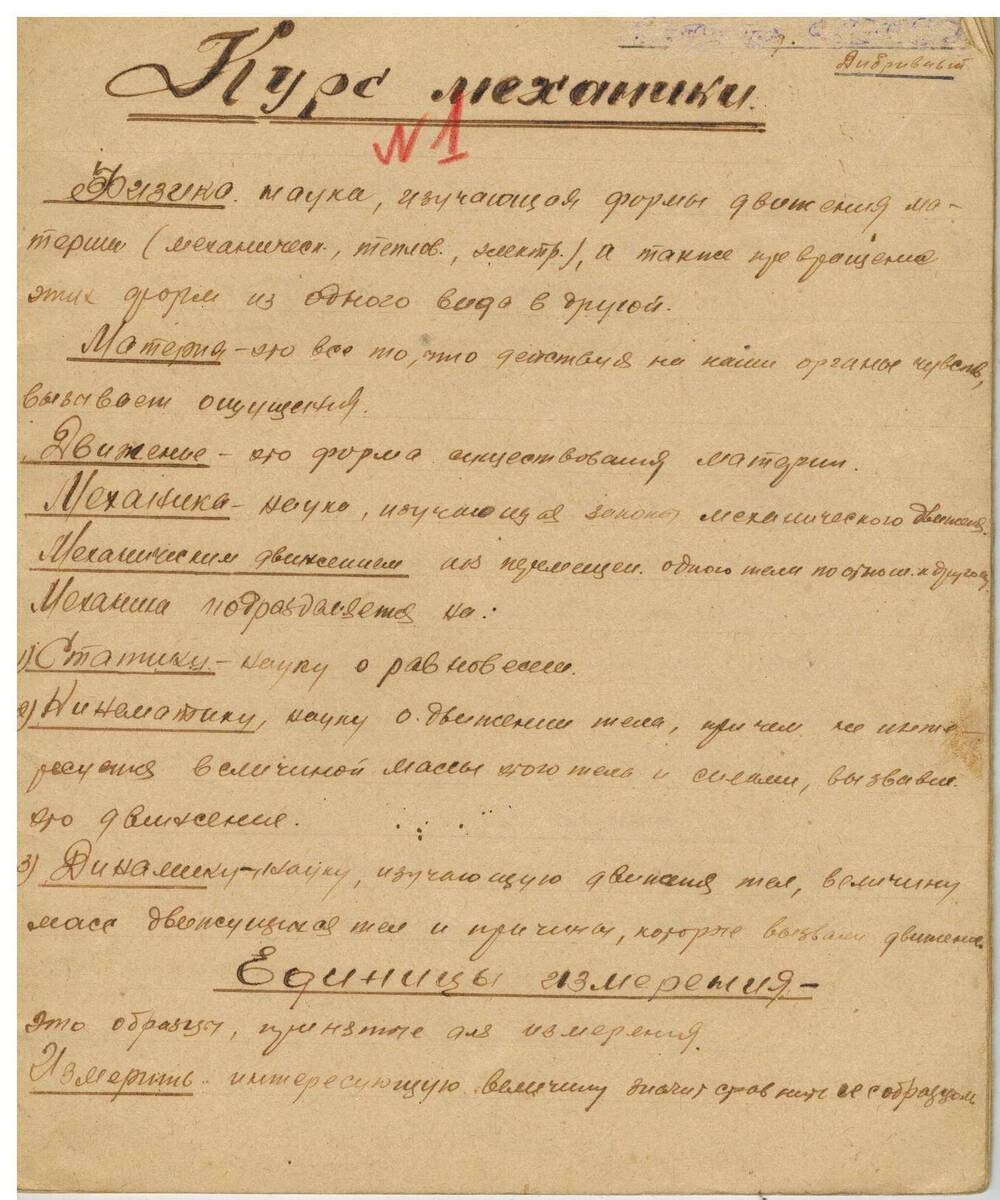 Курс механики.
N1
Физика. наука, изучающая формы движения ма-
терии (механическ., теплов., электр.), а также превращение
этих форм из одного вида в другой.
Материя – это все то, что действуя на наши органы чувств,
вызывает ощущения.
Движение – это форма существования материи.
Механика – наука, изучающая законы механического движения.
Механическим движением наз перемещен. одного тела по отнош. к другому.
Механика подразделяется на:
1) Статику – науку о равновесии.
2) Кинематику, науку о движении тела, причем не инте-
ресуется величиной массы этого тела и силами, вызвавш.
это движение.
3) Динамику – науку, изучающую движения тел, величину
масс движущихся тел и причины, которые вызвали движение.
Единицы измерения –
это образцы, принятые для измерения.
Измерить интересующую величину значит сравнить ее с образцом